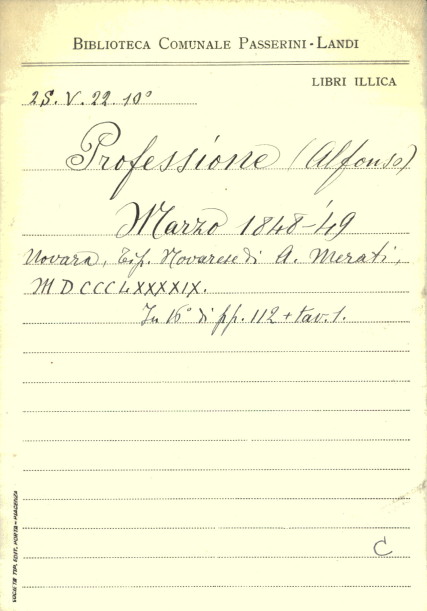 BIBLIOTECA COMUNALE PASSERINI-LANDI
LIBRI ILLICA
2S. V. 22. 10°
Professione (Alfonso)
Marzo 1848-'49
Novara, Tip. Novarese di A. Merati,
MDCCCLXXXXIX.
In 16° di pp. 112 + tav. 1.
C